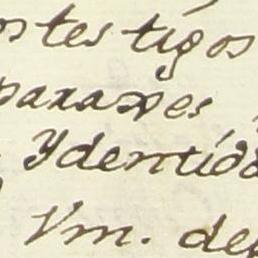 os testigos
paraxes
Ydentida
Vm. de